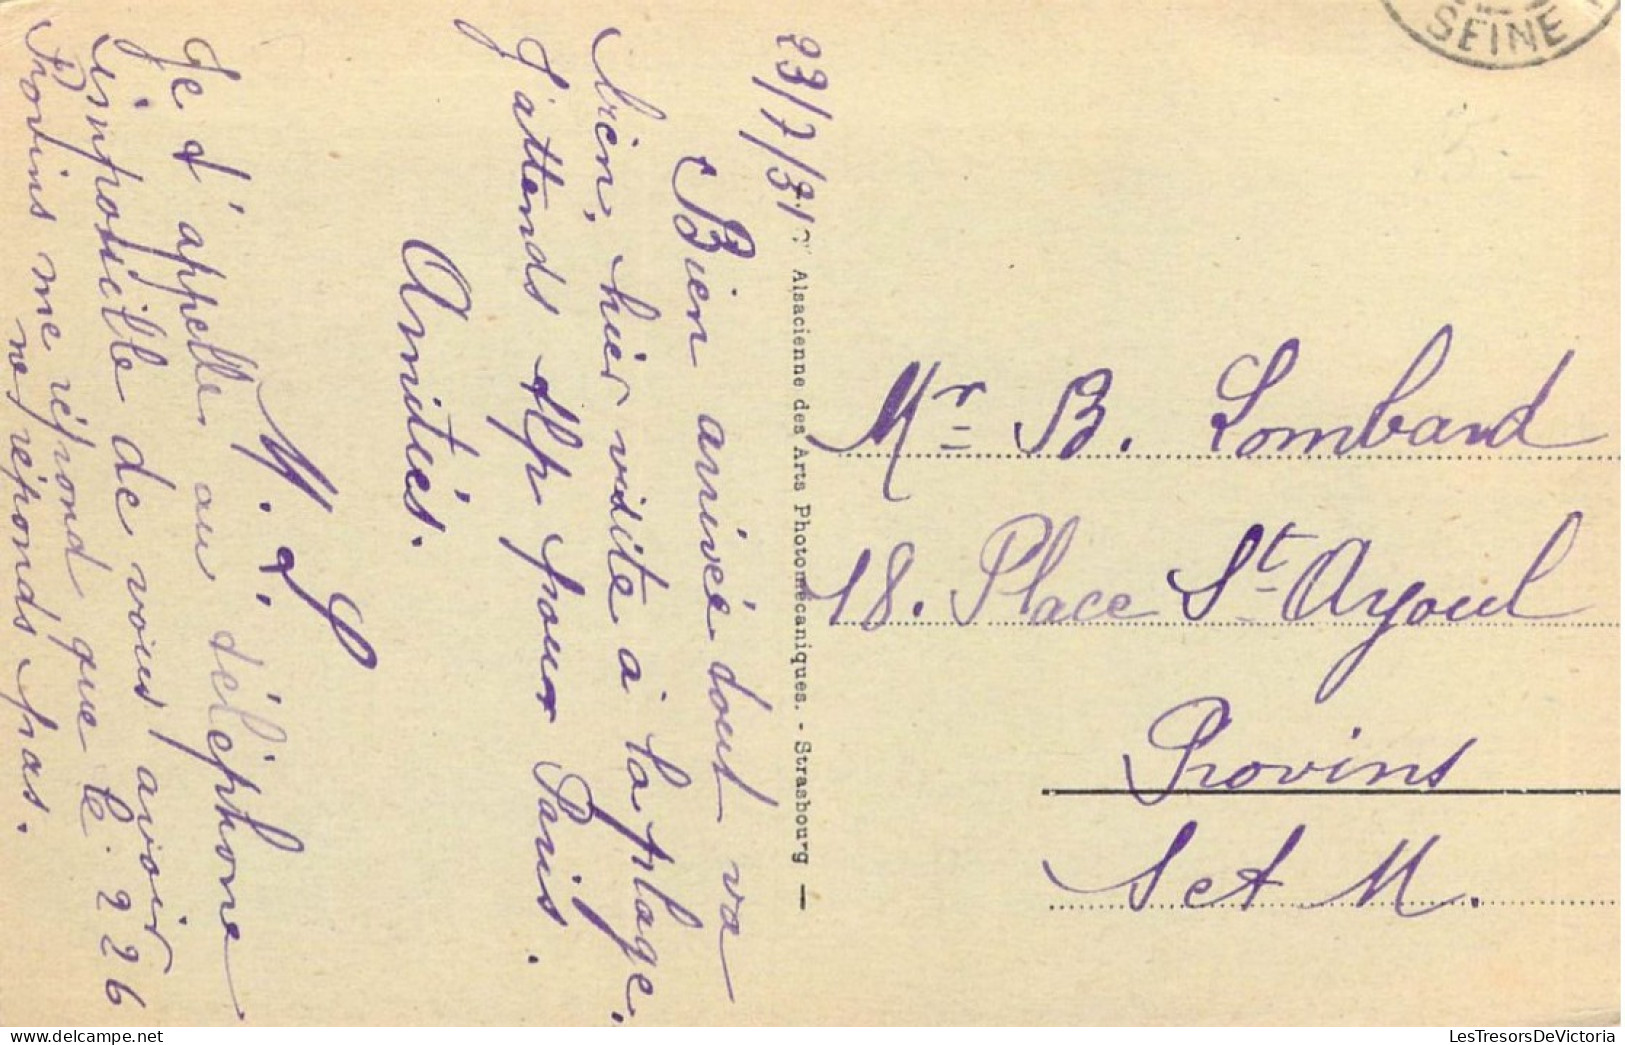 23/7/31
Bien arrivée tout va
bien, hier visite à la plage.
J'attends Hp pour Paris.
Amitiés.
M. L.
Je d'appelle au téléphone
impossible de vous avoir
Provins me répond que le 226
ne réponds pas.
Alsacienne des Arts Photomécaniques. - Strasbourg
SEINE
Mr B. Lombard
18. Place St Ayoul
Provins
S et M.
LesTresorsDeVictoria